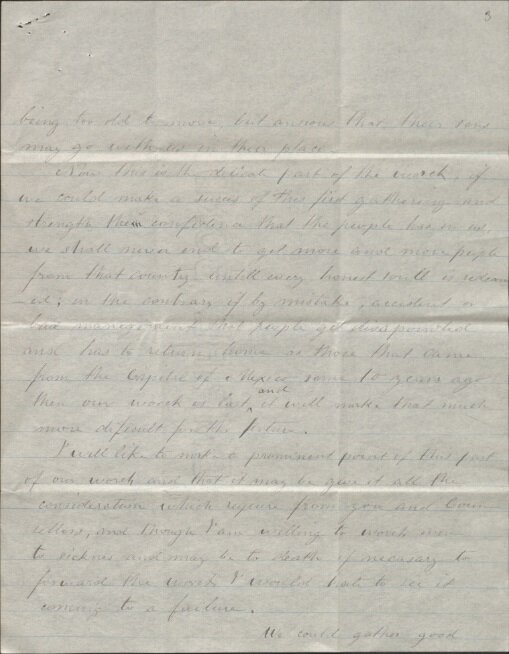 3
being too old to move, but anxious that their sons
may go with us in their place.
Now this is the delicat part of the worck, if
we could make a succes of this first gathering and
strength them confidence that the people has in us,
we shall never end to get more and more peple
from that country untill every honest soull is redeem
ed; in the contrary if by mistake, accident or
bad management that people get disapointed
and has to return home as those that came
from the Capital of Mexico some 10 years ago
then our worck is lost, and it will make that much
more dificult for the future.
I will like to make a prominent point of this part
of our worck and that it may be give it all the
consideration which requere from you and Coun
sellors, and though I am willing to worck even
to sicknes and may be to death if necesary to
forward this worck I would hate to see it
coming to a failure.
We could gather good